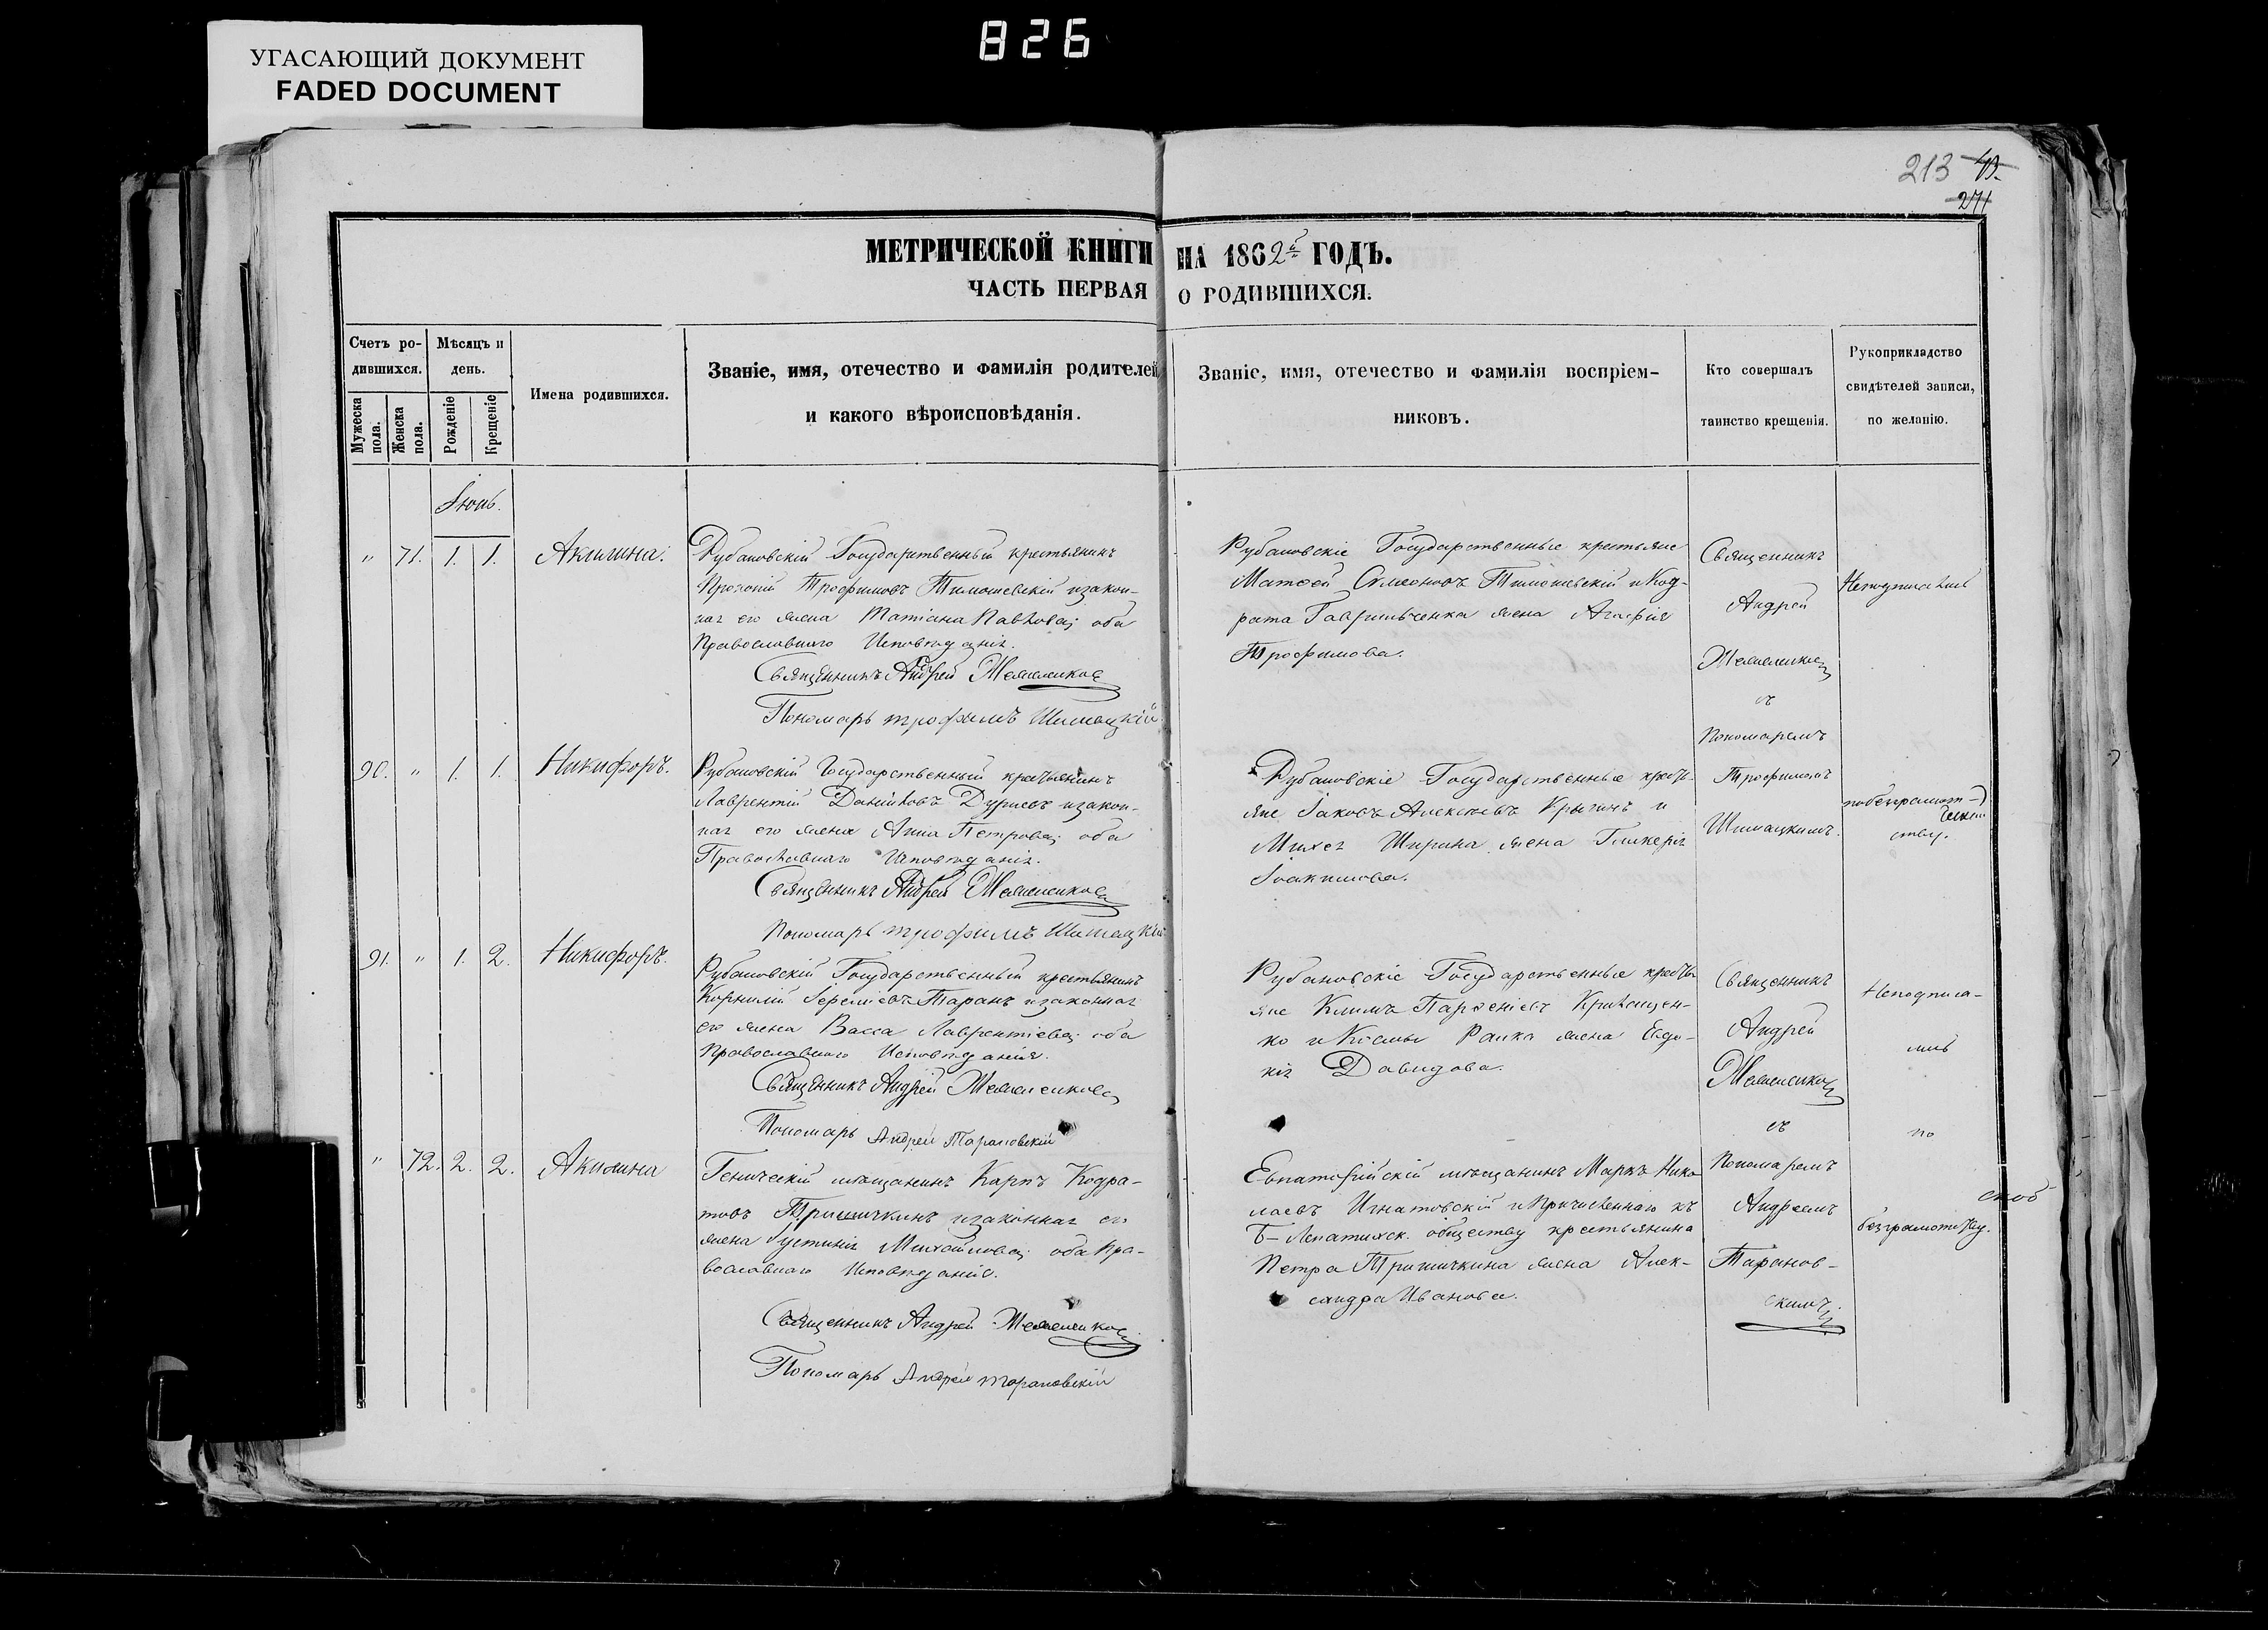 826
УГАСАЮЩИЙ ДОКУМЕНТ
FADED DOCUMENT
213
271
МЕТРИЧЕСКОЙ КНИГИ НА 1862й ГОДЪ.
ЧАСТЬ ПЕРВАЯ О РОДИВШИХСЯ.
Счетъ ро-
дившихся.
Мужеска пола.
Женска пола.
Мѣсяцъ и
день.
Рожденіе
Крещеніе
Имена родившихся.
Званіе, имя, отечество и фамилія родителей
и какого вѣроисповѣданія.
Званіе, имя, отечество и фамилія воспріем-
никовъ.
Кто совершалъ
таинство крещенія.
Рукоприкладство
свидѣтелей записи,
по желанію.
Іюнь.
" 71. 1. 1. Акилина.
Рубановскій Государственный крестьянинъ
Прокопій Трофимовъ Тимошевскій изакон-
ная его жена Татіана Павлова; оба
Православнаго Исповѣданія.
Священникъ Андрей
Пономарь Трофимъ Шимацкій
Рубановскіе Государственные крестьяне
Матѳей Симеоновъ Тимошевскій и Код-
рата Гаврильченка жена Агафія
Трофимова.
Священникъ
Андрей
съ
Пономаремъ
Трофимомъ
Шимацкимъ.
Неподписались
побезграмот-
ству.
90. " 1. 1. Никифоръ.
Рубановскій Государственный крестьянинъ
Лаврентій Даніиловъ изакон-
ная его жена Анна Петрова; оба
Православнаго Исповѣданія.
Священникъ Андрей
Пономарь Трофимъ Шимацкій
Рубановскіе Государственные кресть-
яне Іаковъ Алексіевъ и
Михея Ширина жена Гликерія
Іоакимова.
91. " 1. 2. Никифоръ.
Рубановскій Государственный крестьянинъ
Корнилій Іереміевъ Таранъ изаконная
его жена Васса Лаврентіева; оба
Православнаго Исповѣданія.
Священникъ Андрей
Пономарь Андрей Тарановскій
Рубановскіе Государственные кресть
яне Климъ Парѳеніевъ
ко и Космы жена Евдо-
кія Давидова.
Священникъ
Андрей
съ
Пономаремъ
Андреемъ
Таранов-
скимъ.
Неподписа-
лись
по
безграмотству.
" 72. 2. 2. Акилина
Геническій мѣщанинъ Карпъ Кодра-
товъ Тришичкинъ изаконная его
жена Іустинія Михайлова; оба Пра-
вославнаго Исповѣданія.
Священникъ Андрей
Пономарь Андрей Тарановскій
Евпаторійскій мѣщанинъ Маркъ Нико
лаевъ Игнатовскій и Причисленнаго къ
Б-Лепатихск. обществу крестьянина
Петра Тришичкина жена Алек-
сандра Иванова.